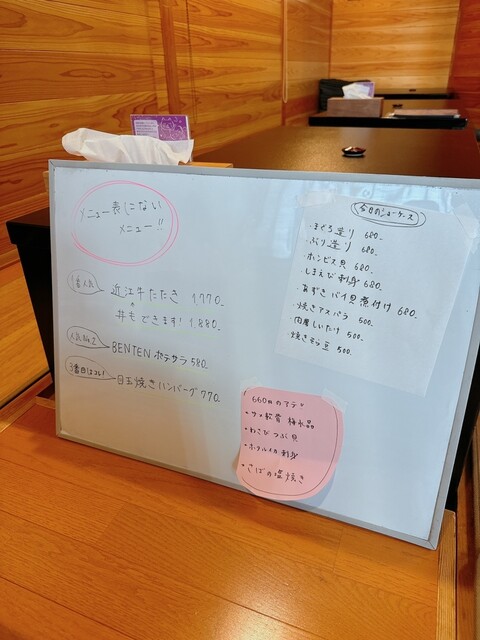 メニュー表にない
メニュー!!
1番人気
近江牛たたき 1,770.
丼もできます! 1,880.
人気No.2
BENTEN ポテサラ 580.
3番目はコレ!
目玉焼きハンバーグ 770.
今日のショーケース
・まぐろ造り 680.
・ぶり造り 680.
・ホンビス貝 680.
・しまえび刺身 680.
・あずきバイ貝煮付け 680.
・焼きアスパラ 500.
・肉厚しいたけ 500.
・焼きそら豆 500.
660円のアテ
・サメ軟骨 梅水晶
・わさびつぶ貝
・ホタルイカ刺身
・さばの塩焼き